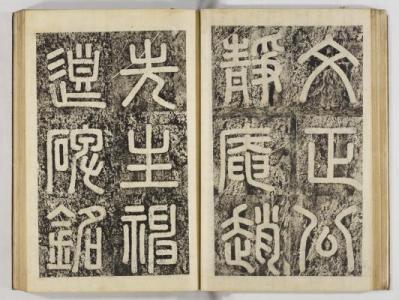 文正公
靜庵趙
先生神
道碑銘